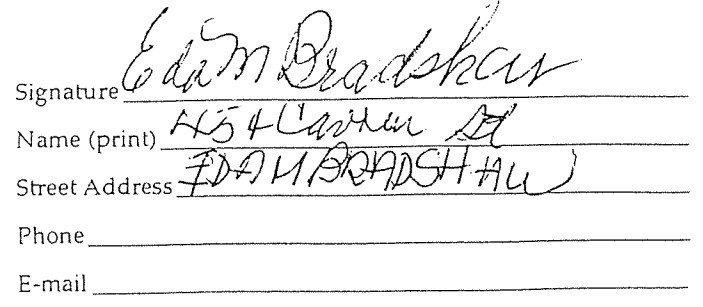 Signature Eda M Bradshaw
Name (print) 454 St
Street Address IDA M BRADSHAW
Phone
E-mail